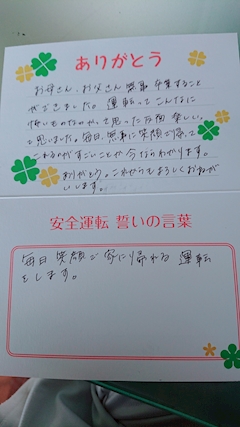 ありがとう
お母さん、お父さん無事卒業すること
ができました。運転ってこんなに
怖いものなのかって思った反面楽しい。
と思いました。毎日無事に笑顔で帰って
これるのがすごいことが今ならわかります。
ありがとう。これからもよろしくおねが
いします。
安全運転 誓いの言葉
毎日笑顔で家に帰れる運転
をします。